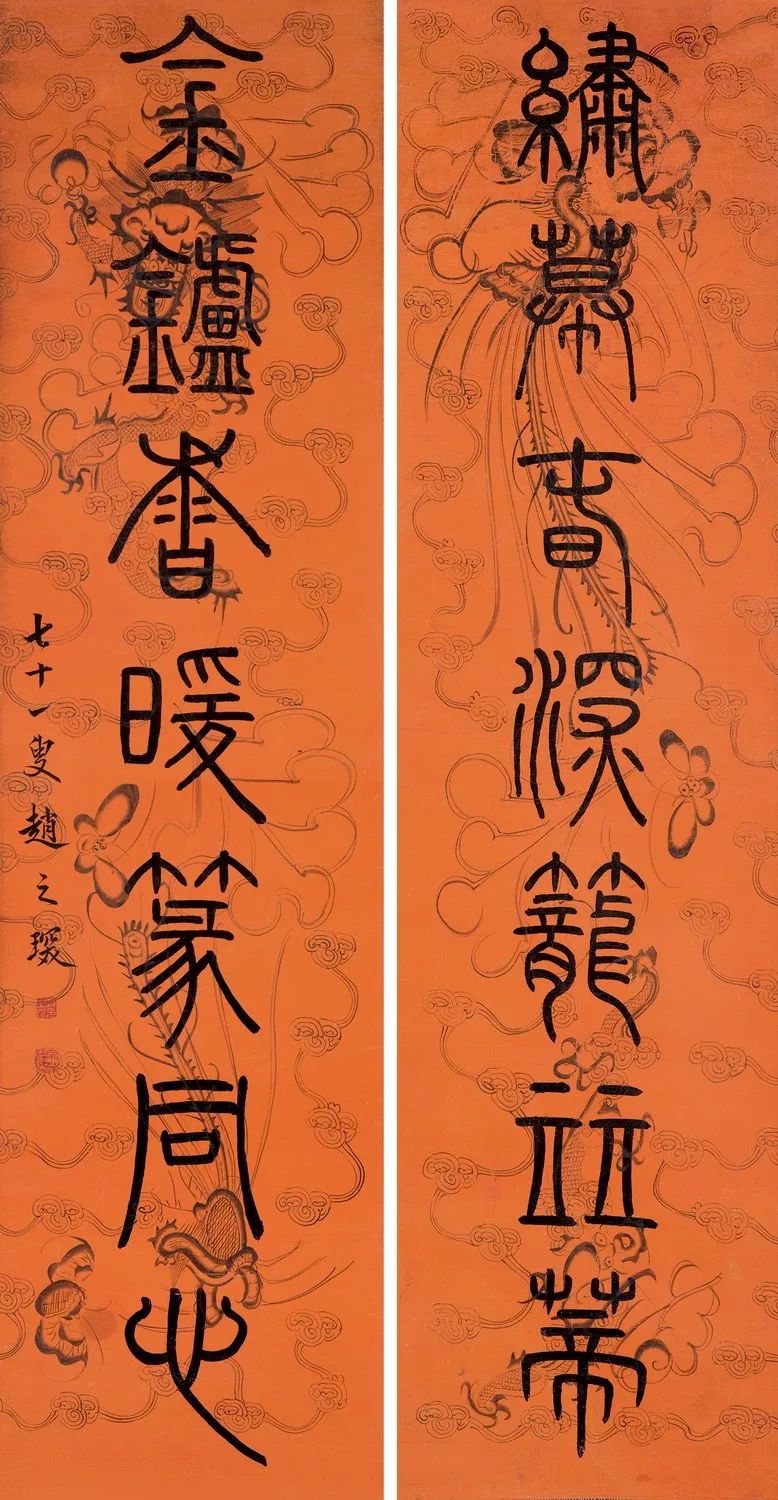 繡幕旾深籠竝蒂
金鑪香暖篆同心
七十一叟趙之琛